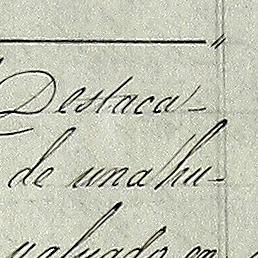 Destaca-
de una hu-
valuado en